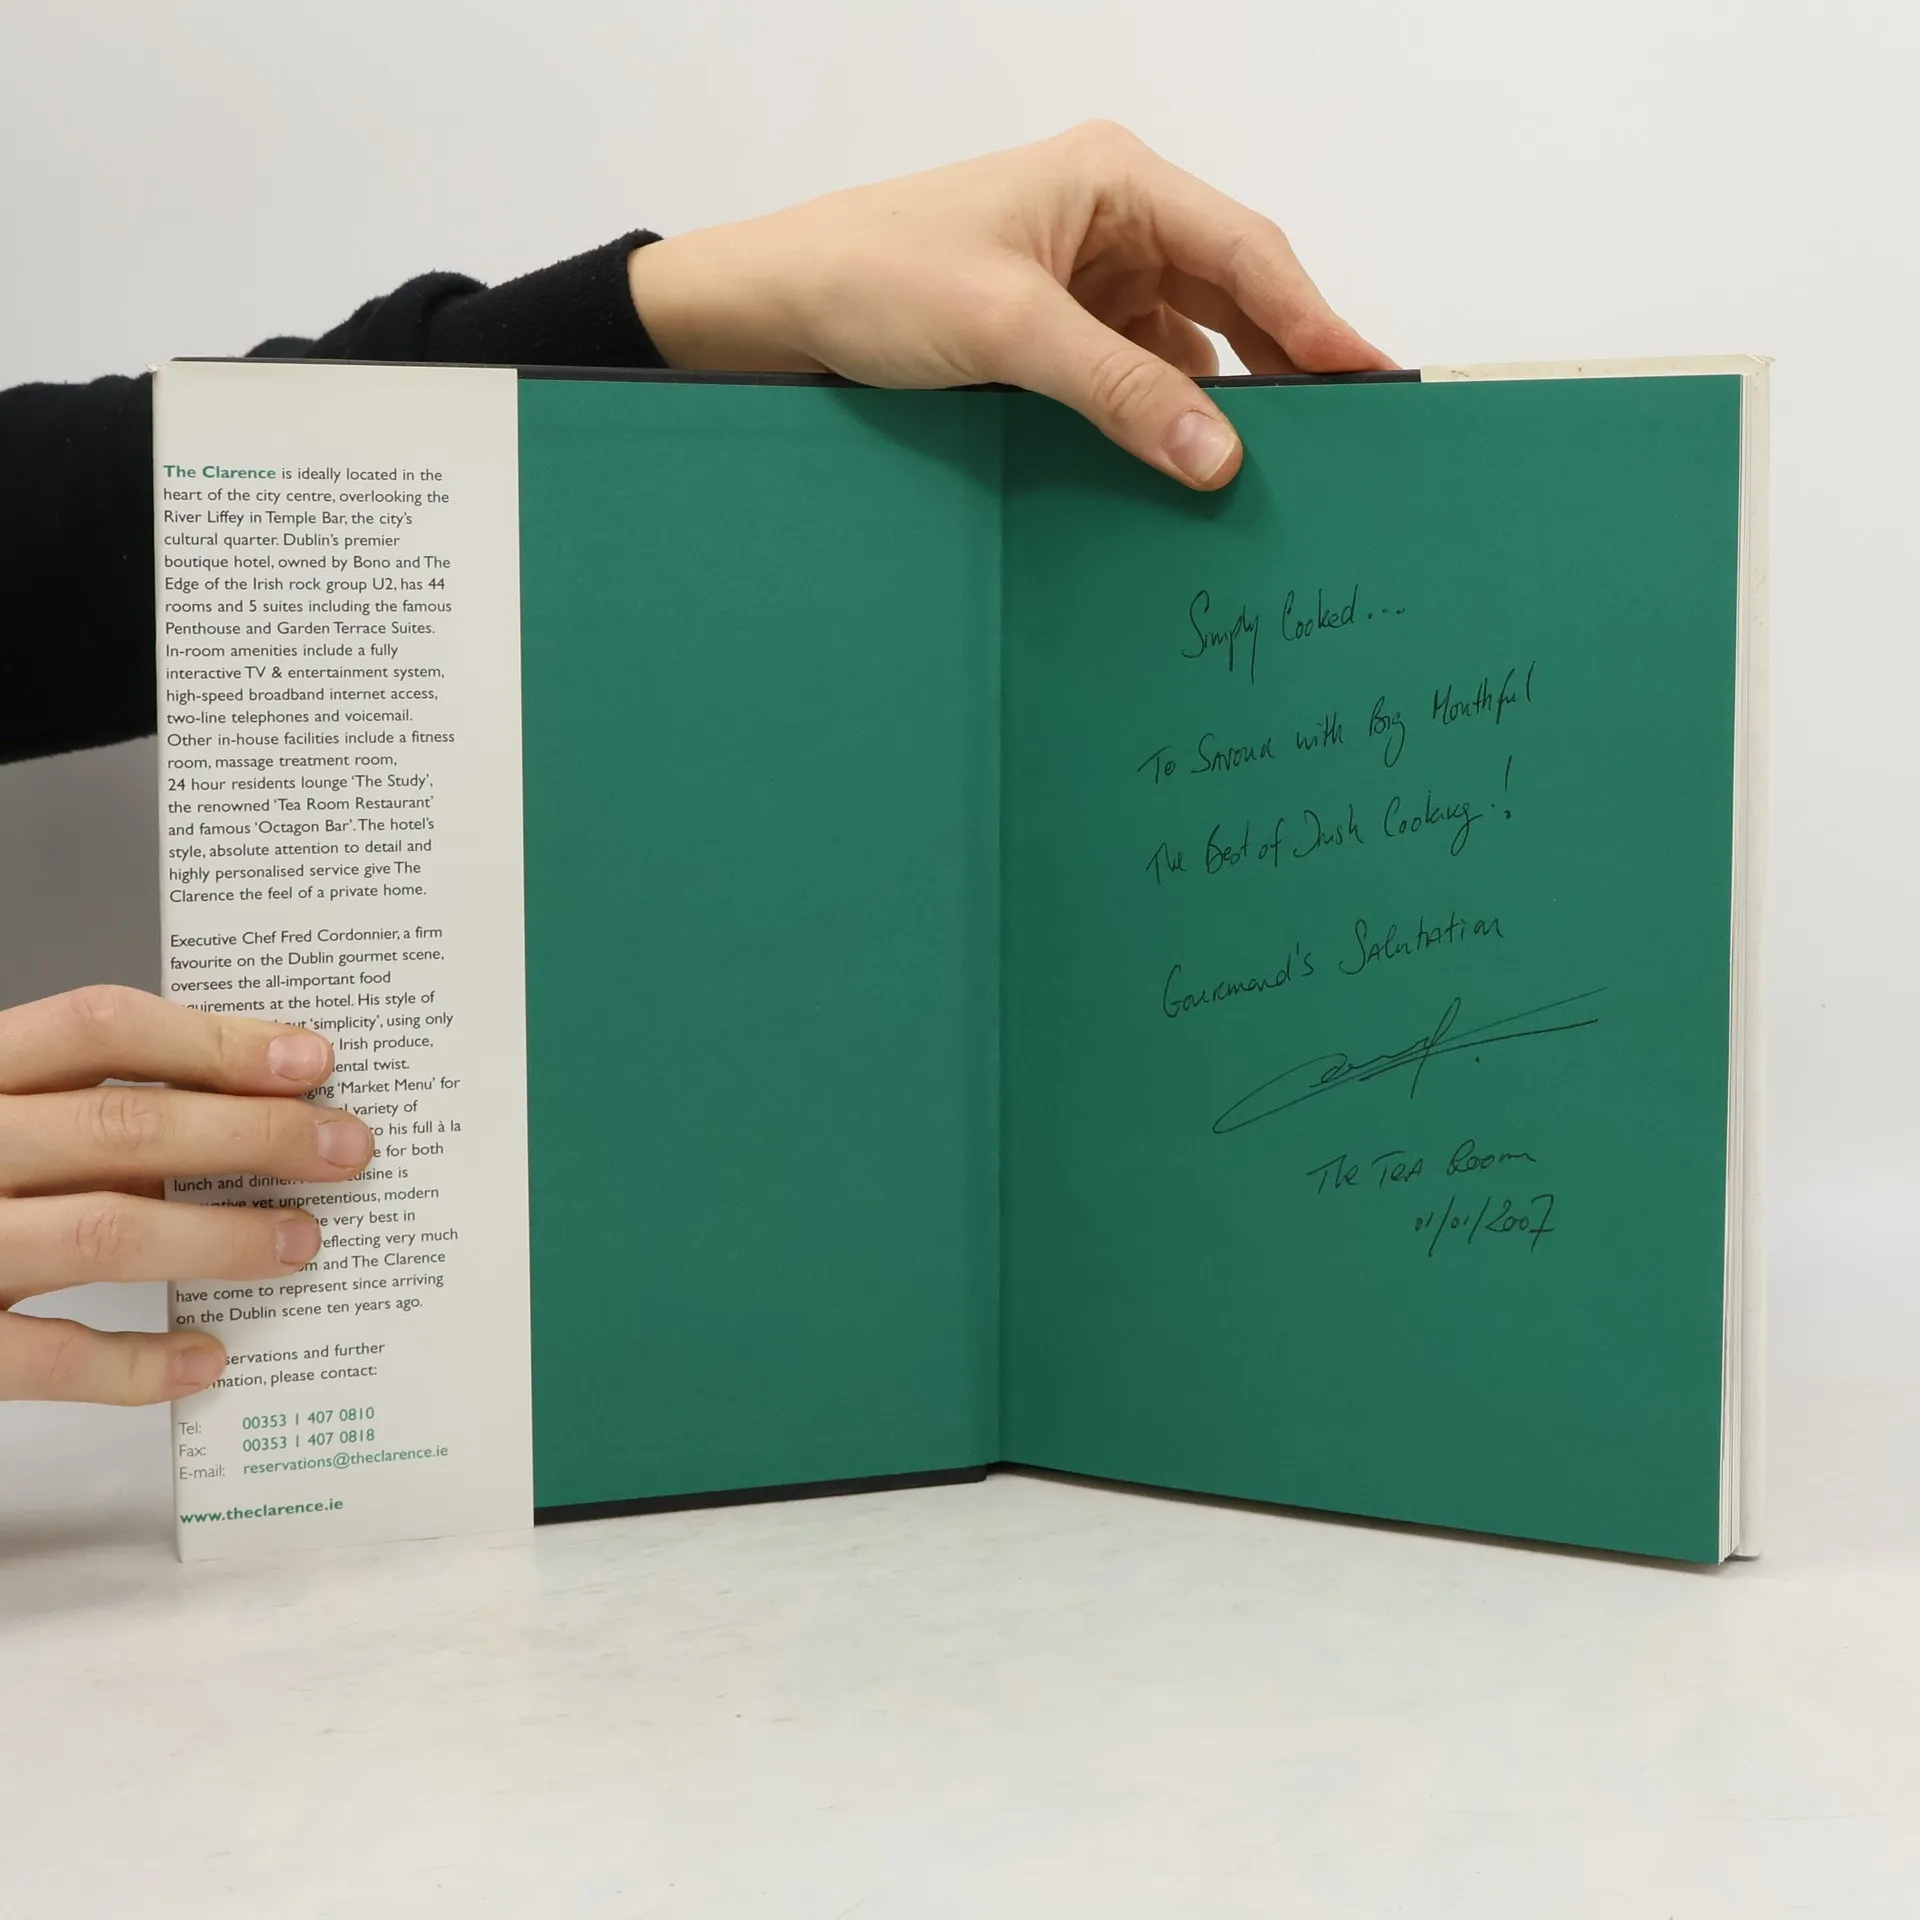 The Clarence is ideally located in the
heart of the city centre, overlooking the
River Liffey in Temple Bar, the city's
cultural quarter. Dublin's premier
boutique hotel, owned by Bono and The
Edge of the Irish rock group U2, has 44
rooms and 5 suites including the famous
Penthouse and Garden Terrace Suites.
In-room amenities include a fully
interactive TV & entertainment system,
high-speed broadband internet access,
two-line telephones and voicemail.
Other in-house facilities include a fitness
room, massage treatment room,
24 hour residents lounge 'The Study',
the renowned 'Tea Room Restaurant'
and famous 'Octagon Bar'. The hotel's
style, absolute attention to detail and
highly personalised service give The
Clarence the feel of a private home.
Executive Chef Fred Cordonnier, a firm
favourite on the Dublin gourmet scene,
oversees the all-important food
at the hotel. His style of
'simplicity', using only
Irish produce,
twist.
'Market Menu' for
variety of
to his full à la
for both
lunch and is
yet unpretentious, modern
very best in
reflecting very much
and The Clarence
have come to represent since arriving
on the Dublin scene ten years ago.
and further
please contact:
Tel: 00353 1 407 0810
Fax: 00353 1 407 0818
E-mail: reservations@theclarence.ie
www.theclarence.ie
Simply Cooked...
To Savour with Big Mouthful
The Best of Irish Cooking!
Gourmand's Salutation
The Tea Room
01/01/2007